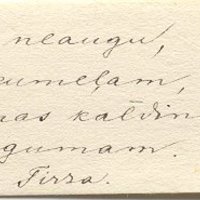 neaugu,
kumeļam,
nas kaldin
gumam.
Tirza.